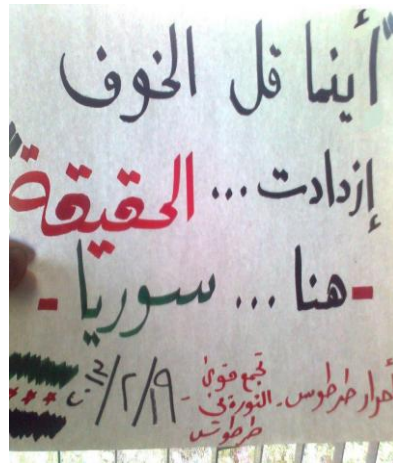 "أينما قل الخوف
إزدادت ... الحقيقة"
- هنا ... سوريا -
أحرار طرطوس -
تجمع قوى
الثورة في
طرطوس
- ١٩/٢/٢٠١٢